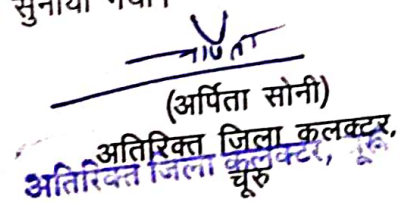 सुनाया गया।
(अर्पिता सोनी)
अतिरिक्त जिला कलक्टर,
अतिरिक्त जिला कलक्टर, चूरू
चूरू